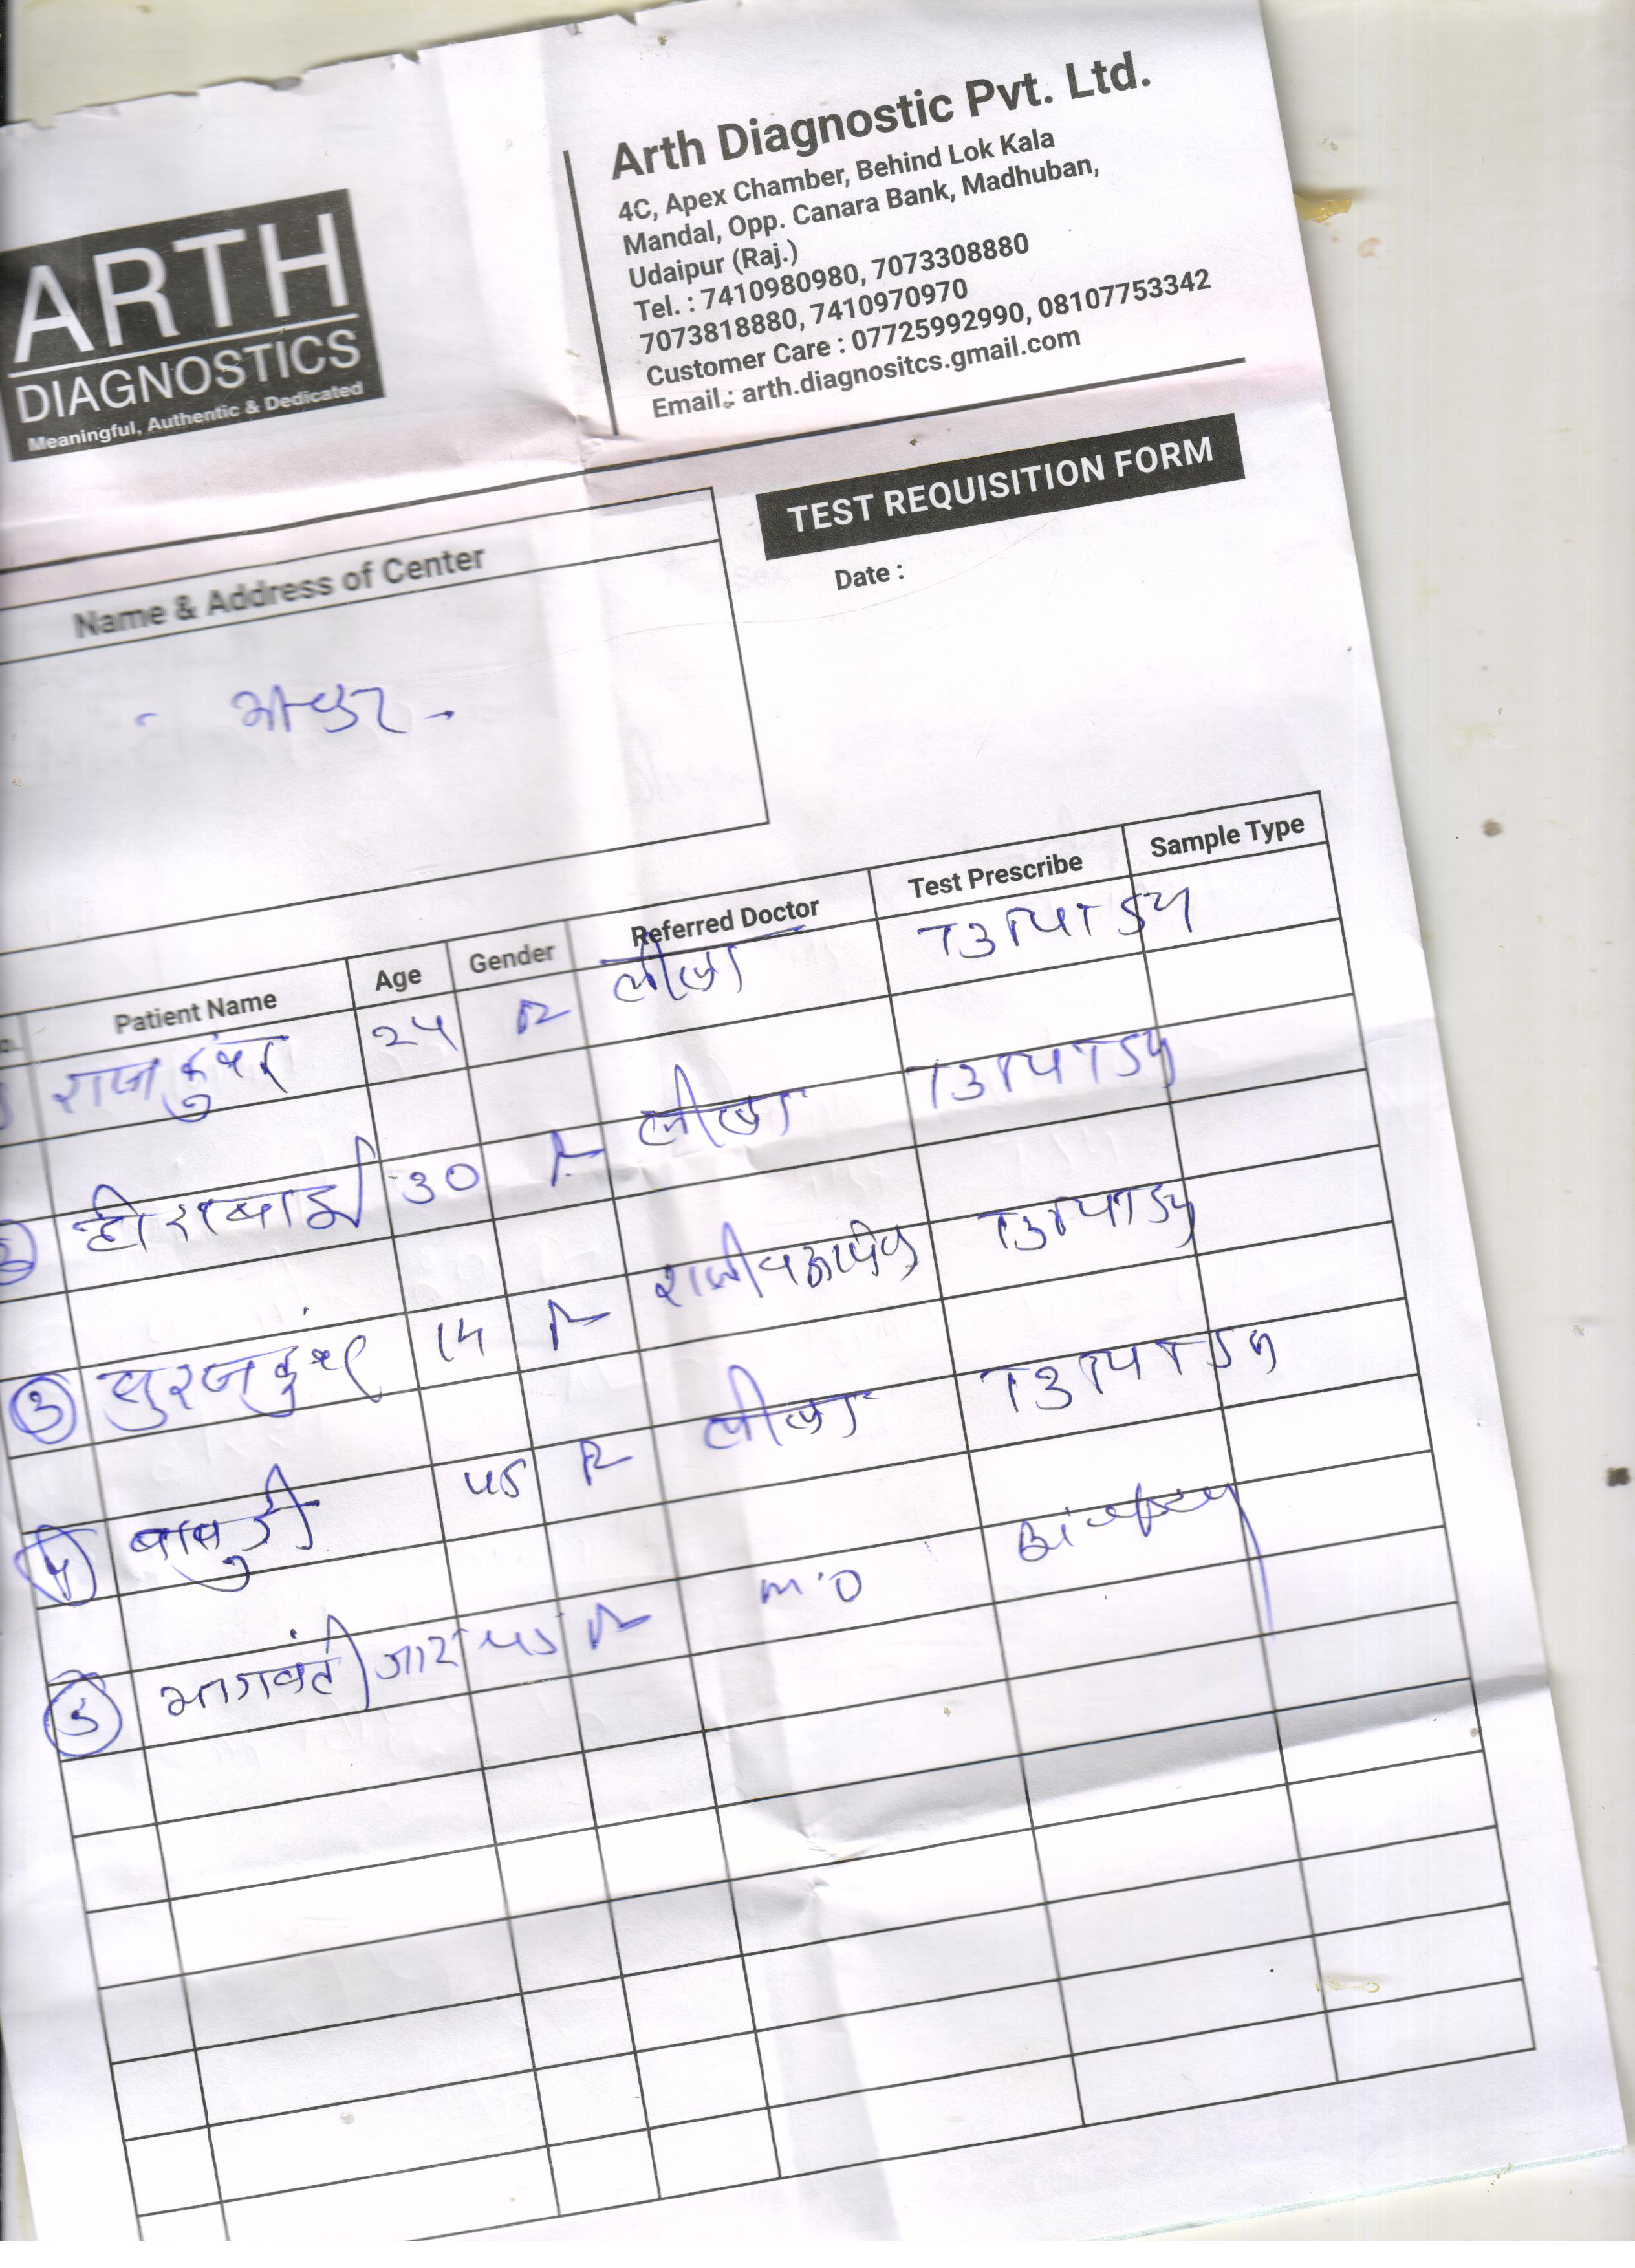 ARTH
DIAGNOSTICS
Meaningful, Authentic & Dedicated
Arth Diagnostic Pvt. Ltd.
4C, Apex Chamber, Behind Lok Kala
Mandal, Opp. Canara Bank, Madhuban,
Udaipur (Raj.)
Tel. : 7410980980, 7073308880
7073818880, 7410970970
Customer Care : 07725992990, 08107753342
Email : arth.diagnositcs.gmail.com
TEST REQUISITION FORM
Date :
Name & Address of Center
Patient Name Age Gender Referred Doctor Test Prescribe Sample Type
राजकुंवर 24 F T3 T4 TSH
हीराबाई 30 F T3 T4 TSH
3 सुरजकुंवर F T3 T4 TSH
4 45 F T3 T4 TSH
5 45 F M.O Biopsy